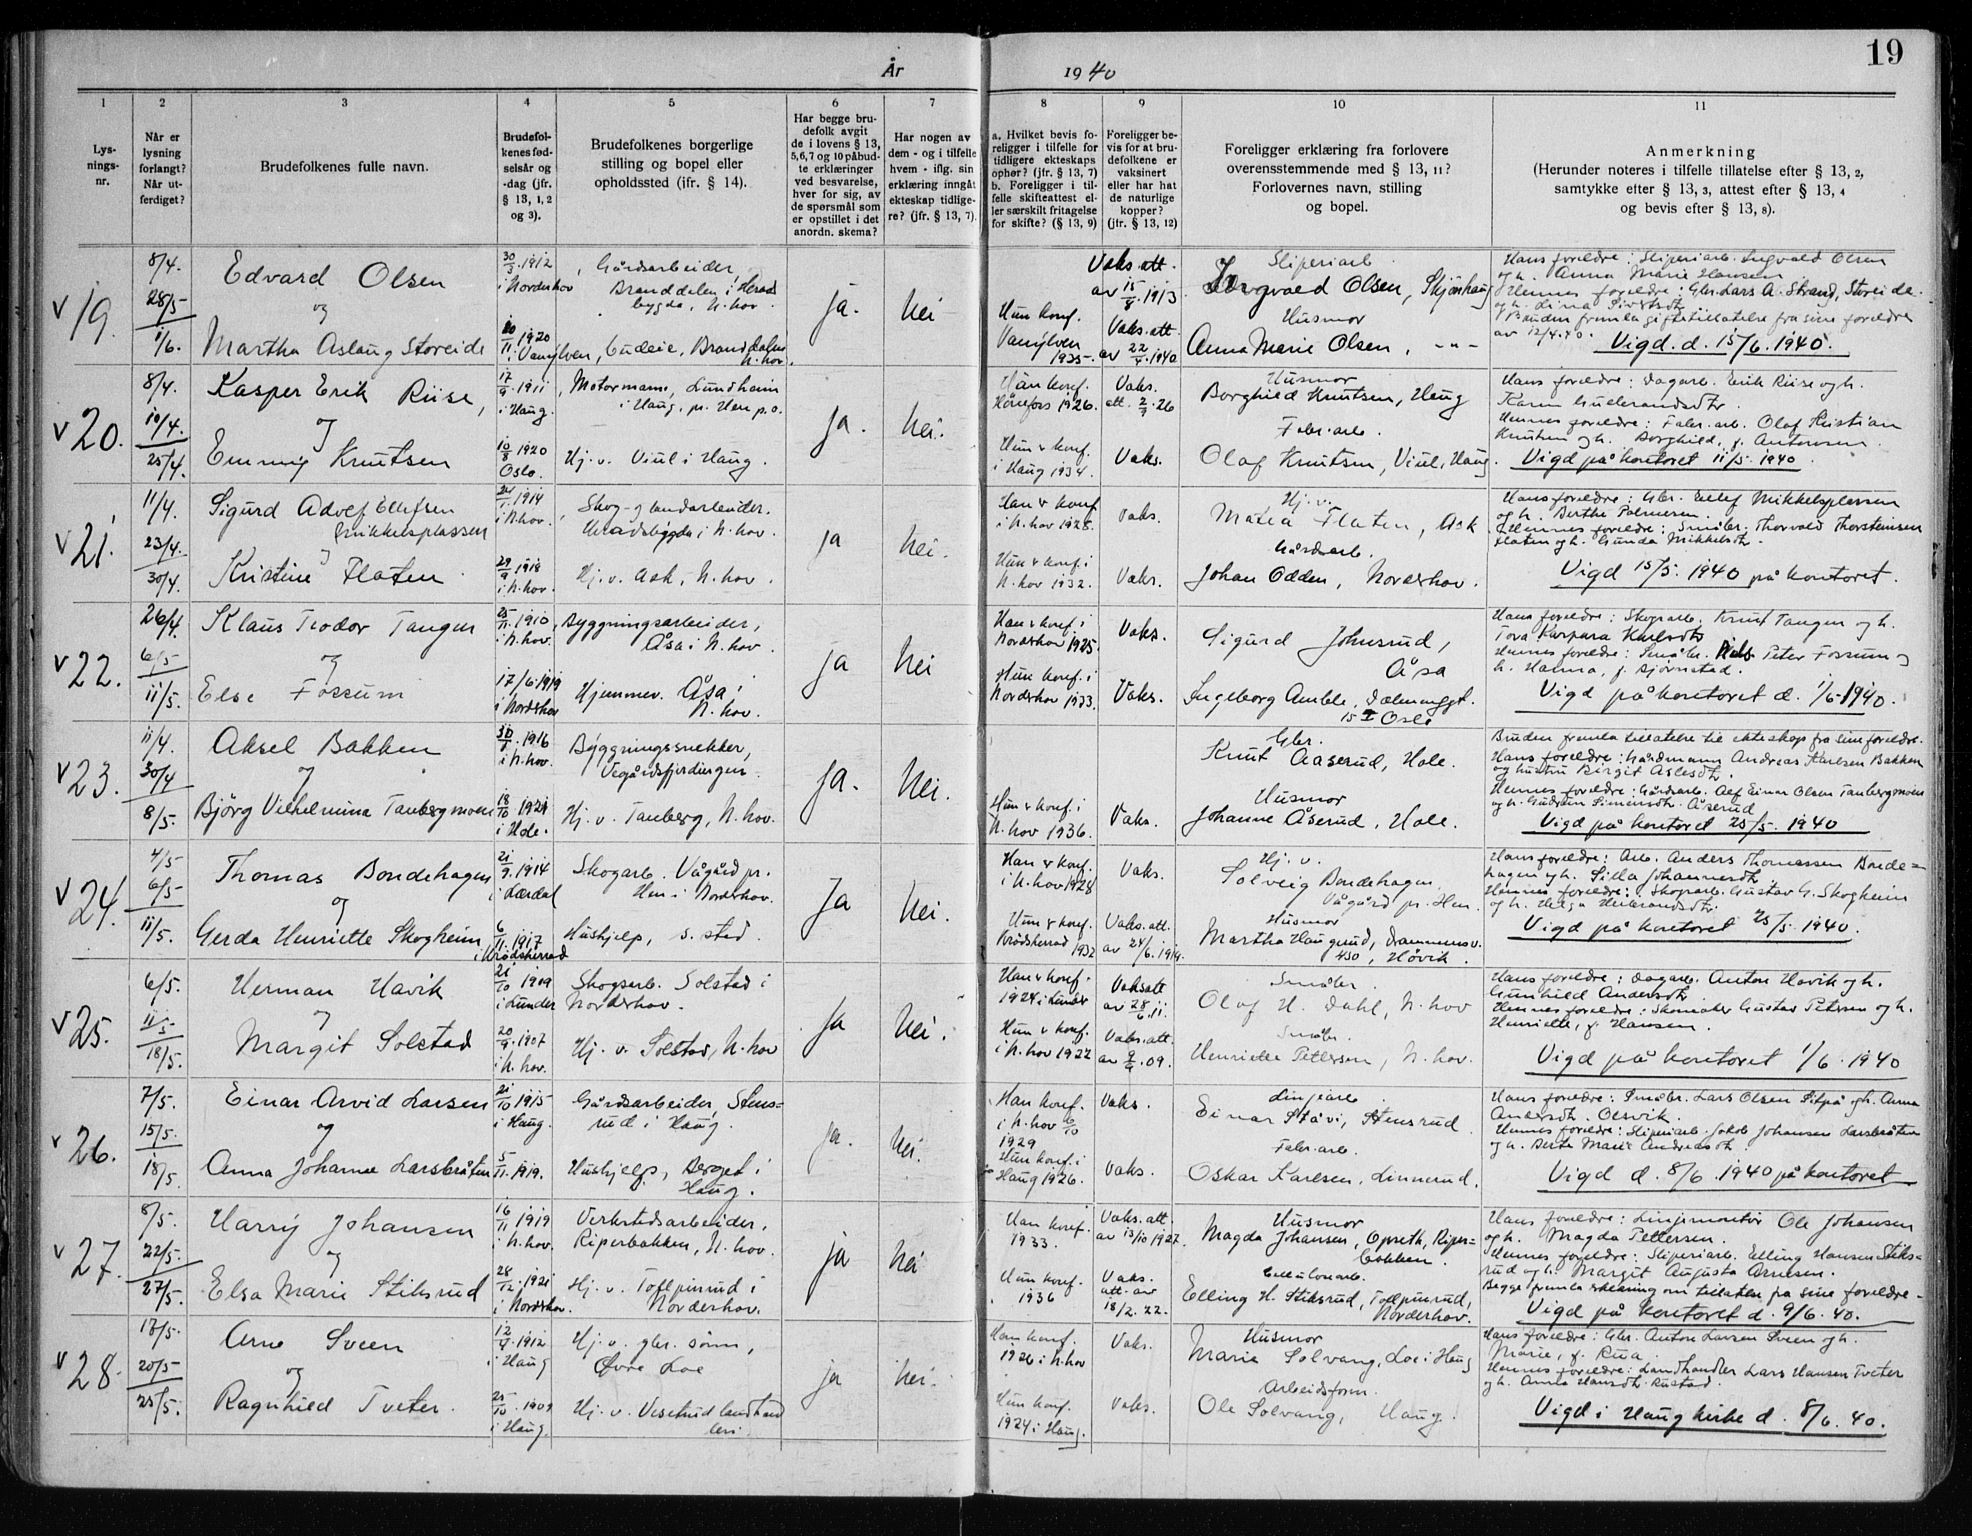 19
År 1940
1 2 3 4 5 6 7 8 9 10 11
Lys-
nings-
nr.
Når er
lysning
forlangt?
Når ut-
ferdiget?
Brudefolkenes fulle navn.
Brudefol-
kenes fød-
selsår og
-dag (jfr.
§ 13, 1, 2
og 3).
Brudefolkenes borgerlige
stilling og bopel eller
opholdssted (ifr. § 14).
Har begge bru-
defolk avgit
de i lovens § 13,
5, 6, 7 og 10 påbud-
te erklæringer
ved besvarelse,
hver for sig, av
de spørsmål som
er opstillet i det
anordn. skema?
Har nogen av
dem - og i tilfelle
hvem - iflg. sin
erklæring inngått
ekteskap tidlige-
re? (jfr. § 13, 7).
a. Hvilket bevis fo-
religger i tilfelle for
tidligere ekteskaps
ophør? (jfr. § 13, 7)
b. Foreligger i til-
felle skifteattest el-
ler særskilt fritagelse
for skifte? (§ 13, 9)
Foreligger be-
vis for at bru-
defolkene er
vaksinert
eller har hat
de naturlige
kopper?
(jfr. § 13, 12)
Foreligger erklæring fra forlovere
overensstemmende med § 13, 11?
Forlovernes navn, stilling
og bopel.
Anmerkning
(Herunder noteres i tilfelle tillatelse efter § 13, 2,
samtykke efter § 13, 3, attest efter § 13, 4
og bevis efter § 13, 8).
v 19.
8/4.
28/5
1/6.
Edvard Olsen
og
Martha Aslaug Storeide
30/3.1912
i Norderhov
20/11 1920
i Vanylven,
Gårdsarbeider,
Branddalen i Herads
bygda, N.hov.
Budeie, Branddalen
N.hov.
ja.
Nei
Hun konf.
Vanylven
1935.
Vaks.att.
av 15/8.1913
Vaks.att.
av 22/4.1940
Sliperiarb.
Ingvald Olsen, Skjørhaug
Husmor
Anna Marie Olsen, -"-
Hans foreldre: Sliperiarb. Ingvald Olsen
og h. Anna Marie Hansen
Hennes foreldre: Gbr. Lars A. Strand, Storeide
og h. Lina Sivertsdtr.
Bruden fremla giftetillatelse fra sine foreldre
av 12/4.40.
Vigd. d. 15/6.1940.
v 20.
8/4.
10/4.
25/4.
Kasper Erik Riise,
og
Emmy Knutsen
17/9.1911
i Haug.
10/8 1920
Oslo.
Motormann, Lundheim
i Haug, pr. Hen p.o.
Hj. v. Viul i Haug.
ja.
Nei.
Han konf.
Hønefoss 1926.
Hun v konf.
i Haug 1934.
Vaks.
att. 2/3.26
Vaks.
Husmor
Borghild Knutsen, Haug
Fabr.arb.
Olaf Knutsen, Viul, Haug.
Hans foreldre: Dagarb. Erik Riise og h.
Karen Gulbrandsdtr.
Hennes foreldre: Fabr.arb. Olaf Kristian
Knutsen og h. Borghild, f. Antonsen.
Vigd på kontoret 11/5. 1940.
v 21.
11/4.
23/4.
30/4.
Sigurd Advef Ellefsen
Mikkelsplassen
og
Kristine Flaten
1914
i N.hov.
29/9 1918
i N.hov.
Skog- og landarbeider.
Heradsbygda i N.hov.
Hj. v. Ask, N.hov.
ja
Nei.
Han v konf
i N.hov 1928.
Hun v konf. i
N.hov 1932.
Vaks.
Vaks.
Hj. v.
Matea Flaten, Ask
Gårdsarb.
Johan Odden, Norderhov.
Hans foreldre: Gbr. Ellef Mikkelsplassen
og h. Berthe Palmesen.
Hennes foreldre: Småbr. Thorvald Thorstensen
Flaten og h. Gunda Mikkelsdtr.
Vigd 15/5. 1940 på kontoret.
v 22.
26/4.
6/5
11/5.
Klaus Teodor Tangen
og
Else Fossum
25/11.1910,
i N.hov.
17/6.1919
i Norderhov
Byggningsarbeider,
Åsa i N.hov.
Hjemmev. Åsa i
N.hov.
ja
Nei
Han v konf. i
Norderhov 1925.
Hun konf. i
Norderhov 1933.
Vaks.
Vaks.
Sigurd Johnsrud,
Åsa
Ingeborg Amble, Dælenenggt.
15 I Oslo
Hans foreldre: Skogarb. Knut Tangen og h.
Tora Karpara Karlsdtr
Hennes foreldre: Småbr. Peter Fossum og
h. Hanna, f. Bjørnstad.
Vigd på kontoret d. 1/6 1940.
v 23.
11/4.
30/4
8/5.
Aksel Bakken
og
Bjørg Vilhelmina Tanbergmoen
1916
i N.hov.
18/10 1921
i Hole.
Byggningssnekker,
Vegårdsfjerdingen.
Hj. v. Tanberg, N.hov.
ja.
Nei.
Hun v konf. i
N.hov 1936.
Vaks.
Gbr.
Knut Aaserud, Hole.
Husmor
Johanne Åserud, Hole.
Bruden fremla tillatelse til ekteskap fra sine foreldre.
Hans foreldre: Gårdmann Andreas Karlsen Bakken
og hustru Birgit Aslesdtr.
Hennes foreldre: Gårdsarb. Alf Einar Olsen Tanbergmoen
og h. Gudrun Simensdtr. Åserud
Vigd på kontoret 25/5. 1940
v 24.
4/5
6/5
11/5.
Thomas Bondehagen
og
Gerda Henriette Skogheim,
21/9.1914
i Lærdal
6/11.1917
i Krødsherrad
Skogarb. Vågård pr.
Hen i Norderhov.
Hushjelp, s. sted.
Ja
Nei.
Han v konf.
i N.hov 1928
Hun v konf.
Krødsherrad
1932
Vaks.
Vaks.att.
av 24/6.1919.
Hj. v.
Solveig Bondehagen,
Vågård pr. Hen.
Husmor
Martha Haugerud, Drammensv.
430, Høvik.
Hans foreldre: Arb. Anders Thomassen Bonde=
hagen og h. Silla Johannesdtr.
Hennes foreldre: Skogarb. Gustav G. Skogheim
og h. Helga Herbrandsdtr.
Vigd på kontoret 25/5. 1940.
v 25.
6/5.
11/5
18/5.
Herman Havik
og
Margit Solstad
21/10 1909
i Lunder
20/9.1907
i N.hov.
Skogsarb. Solstad i
Norderhov.
Hj. v. Solstad, N.hov
Ja
Nei.
Han v konf.
1924 i Lunder
Hun v konf.
i N.hov 1922
Vaks att
av 28/6.11.
Vaks.att.
av 09.
Småbr.
Olaf H. Dahl, N.hov
Småbr.
Henriette Pettersen, N.hov.
Hans foreldre: Dagarb. Anton Havik og h.
Gunhild Andersdtr
Hennes foreldre: Skomaker Gustav Petersen og h.
Henriette, f. Hansen.
Vigd på kontoret 1/6. 1940
v 26.
7/5.
15/5.
18/5.
Einar Arvid Larsen
og
Anna Johanne Larsbråten
21/10 1915
i Haug.
5/11.1919.
Gårdsarbeider, Stens=
rud i Haug.
Hushjelp, Berget i
Haug.
ja.
Nei.
Han konf.
i N.hov /10
1929
Hun konf. i
Haug 1926.
Vaks.
Vaks.
Linjearb.
Einar Støvi, Stensrud.
Fabr.arb.
Oskar Karlsen, Linnerud.
Hans foreldre: Småbr. Lars Olsen og h. Anna
Andersdtr. Olsvik.
Hennes foreldre: Sliperiarb. Jakob Johansen Larsbråten
og h. Berte Marie Andreasdtr.
Vigd d. 8/6 .1940 på kontoret
v 27.
8/5.
22/5.
27/5.
Harry Johansen
og
Elsa Marie Stiksrud
16/11 1919
i N.hov.
28/12.1921
i Norderhov.
Verkstedsarbeider,
Riperbakken, N.hov.
Hj. v. Tolfpinrud i
Norderhov.
ja
Nei
Han konf.
1933.
Hun konf.
1936
Vaks.att.
av 13/10 1927.
Vaks.
att. av
18/2. 22.
Husmor
Magda Johansen, Opseth, Riper=
bakken.
Cellulosearb.
Elling H. Stiksrud, Tolfpinrud,
Norderhov.
Hans foreldre: Linjemontør Ole Johansen
og h. Magda Pettersen.
Hennes foreldre: Sliperiarb. Elling Hansen Stiks=
rud og h. Margit Augusta Arnesen.
Begge fremla erklæring om tillatelse fra sine foreldre.
Vigd på kontoret d. 9/6. 40.
v 28.
18/5.
20/5
25/5.
Arne Sveen
og
Ragnhild Tveter.
12/4.1912
i Haug
25/10.1909
i Haug.
Hj. v. gbr. sønn,
Øvre Loe
Hj. v. Veseth landhand
leri
ja
Nei.
Han konf.
1926 i N.hov
Hun konf.
1924 i Haug.
Vaks.
Vaks.
Husmor
Marie Solvang, Loe i Haug
Arbeidsform.
Ole Solvang, Haug.
Hans foreldre: Gbr. Anton Larsen Sveen og h.
Marie, f. Rua.
Hennes foreldre: Landhandler Lars Hansen Tveter
og h. Anna Hansdtr. Rustad.
Vigd i Haug kirke d. 8/6. 40.